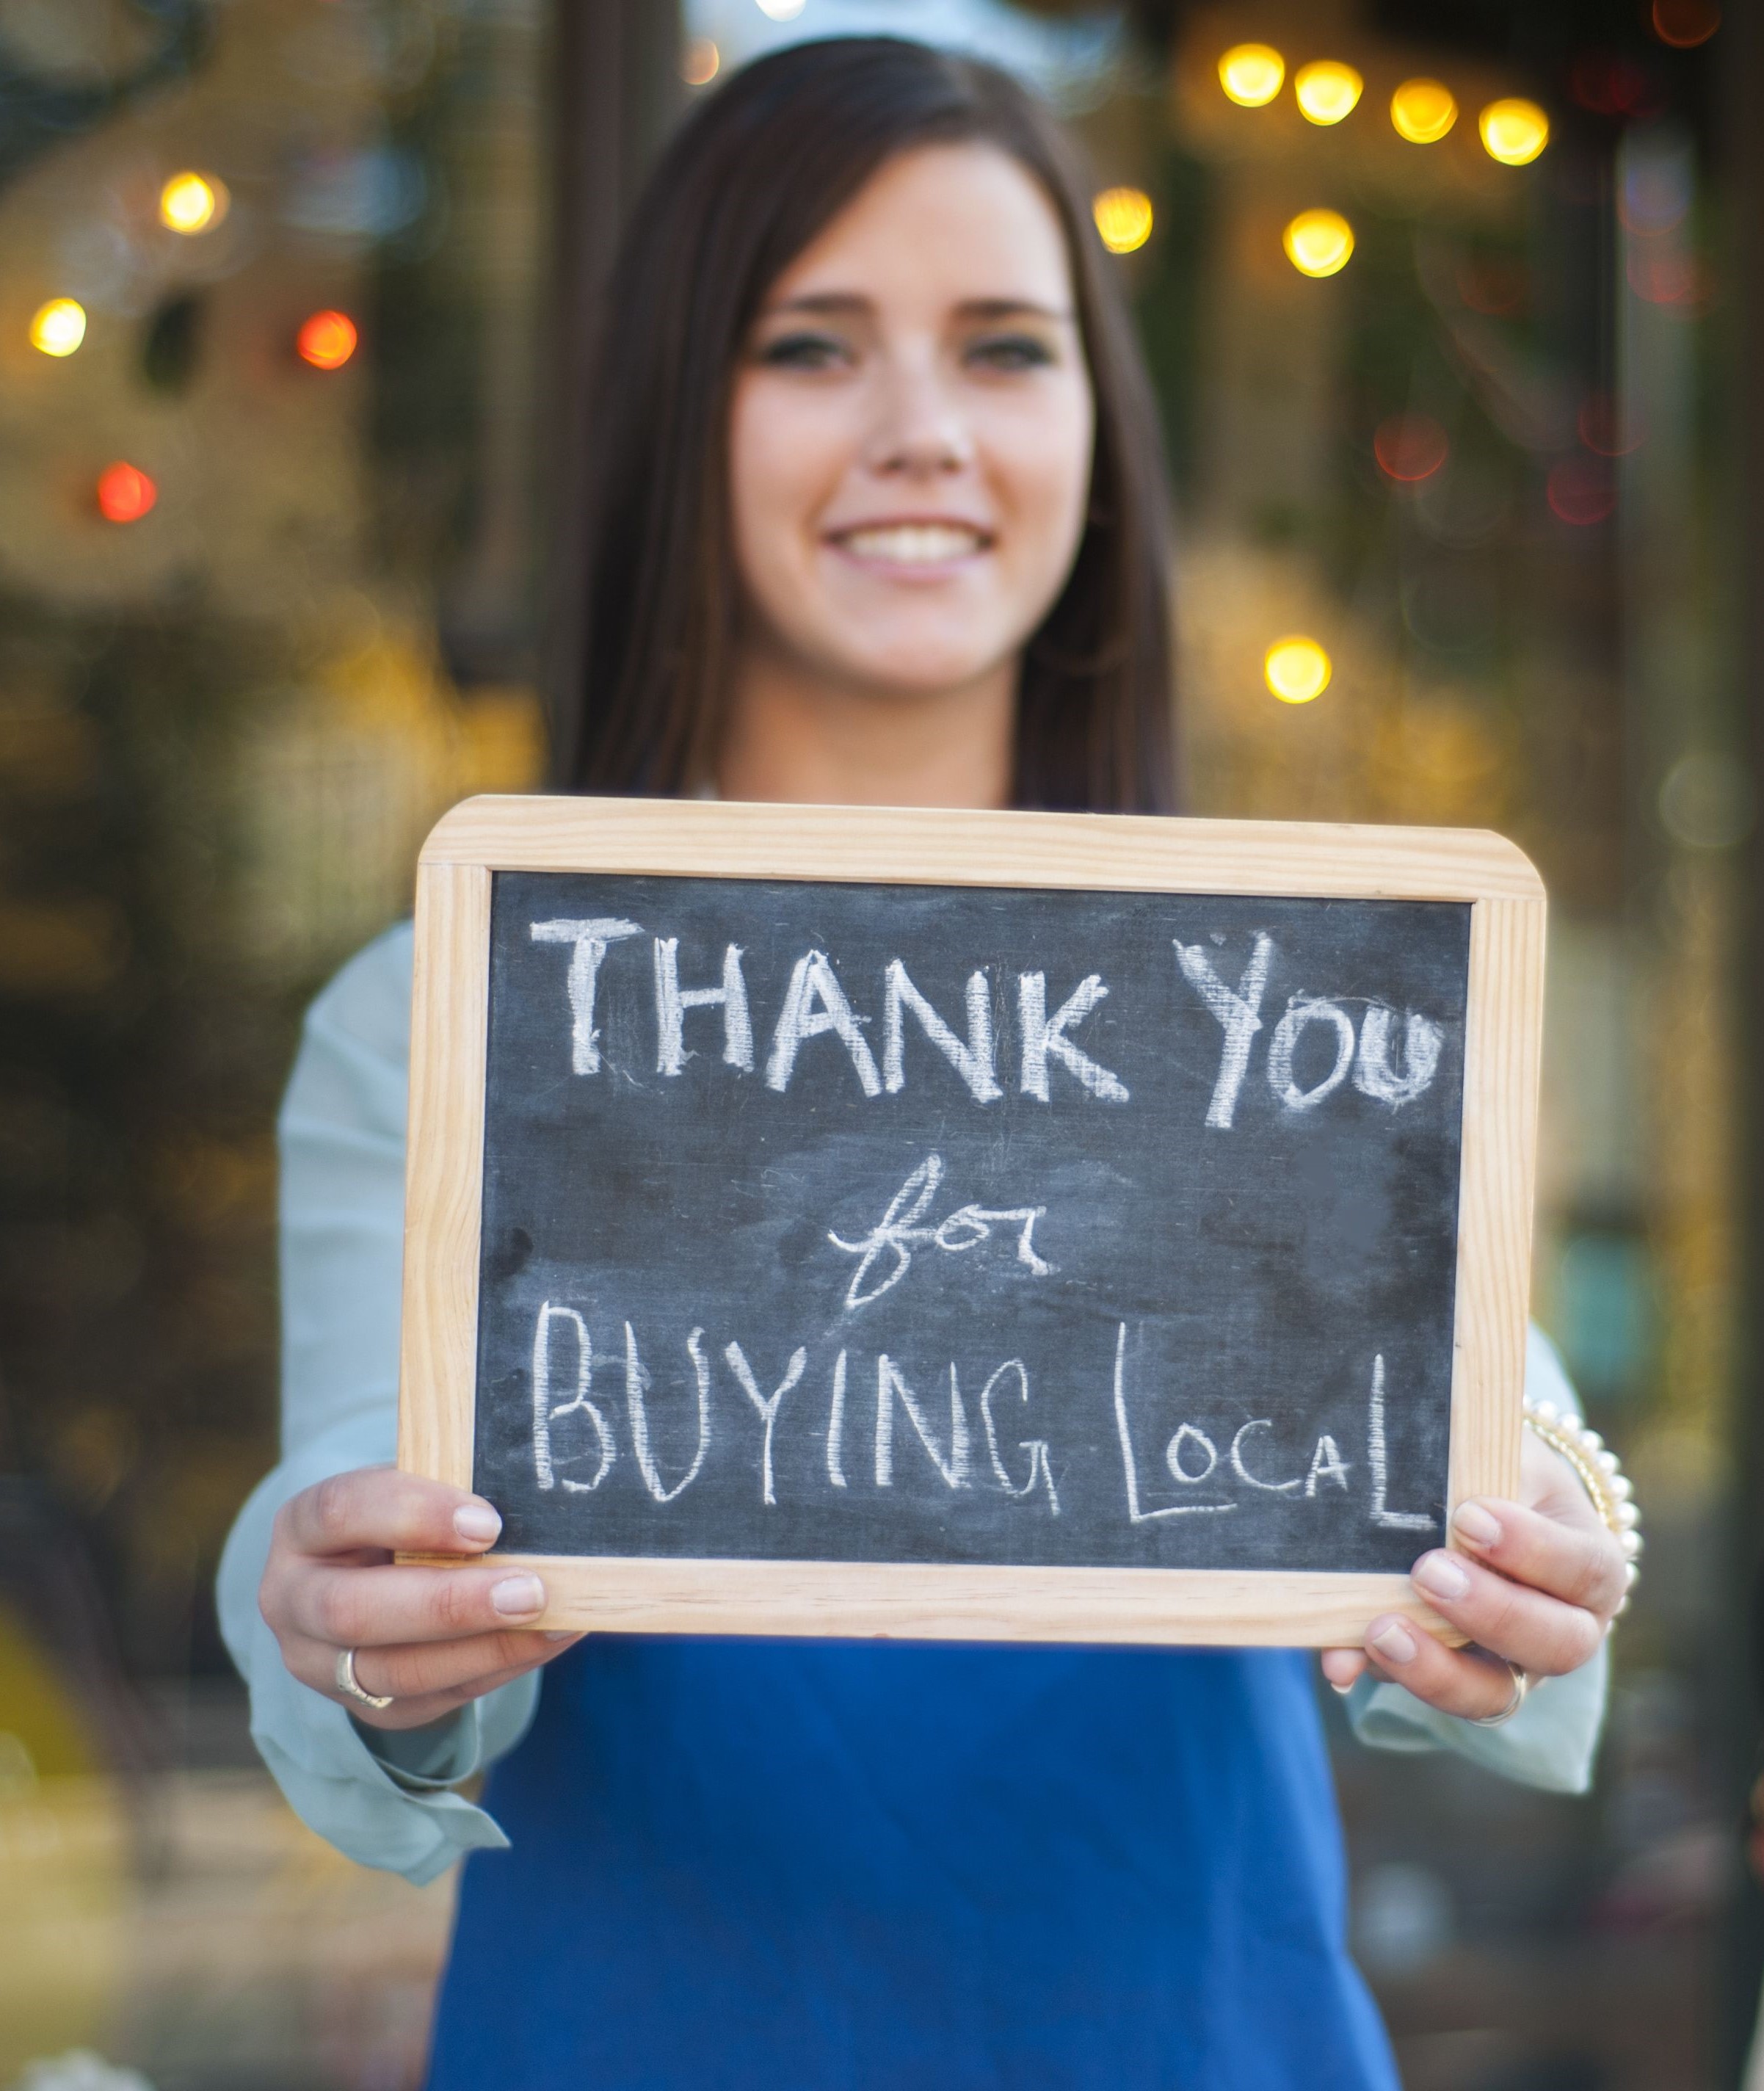 THANK YOU
for
BUYING LOCAL